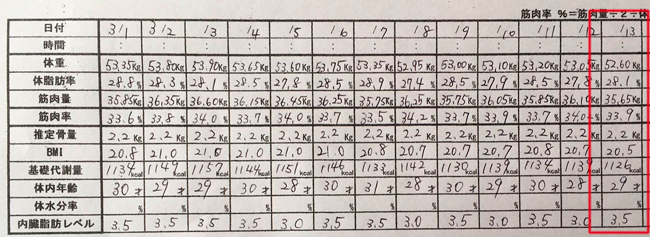 筋肉率 %=筋肉量÷2÷体
日付 3/1 3/2 /3 /4 /5 /6 /7 /8 /9 /10 /11 /12 /13
時間 : : : : : : : : : : : : :
体重 53.35Kg 53.80Kg 53.90Kg 53.65Kg 53.60Kg 53.75Kg 53.35Kg 52.95Kg 53.00Kg 53.10Kg 53.20Kg 53.05Kg 52.60Kg
体脂肪率 28.8% 28.3% 28.1% 28.5% 27.8% 28.5% 28.9% 27.4% 28.5% 27.9% 28.5% 27.8% 28.1%
筋肉量 35.85Kg 36.35Kg 36.60Kg 36.15Kg 36.45Kg 36.25Kg 35.75Kg 36.25Kg 35.75Kg 36.05Kg 35.85Kg 36.10Kg 35.65Kg
筋肉率 33.6% 33.8% 34.0% 33.7% 34.0% 33.7% 33.5% 34.2% 33.7% 33.9% 33.7% 34.0% 33.9%
推定骨量 2.2Kg 2.2Kg 2.2Kg 2.2Kg 2.2Kg 2.2Kg 2.2Kg 2.2Kg 2.2Kg 2.2Kg 2.2Kg 2.2Kg 2.2Kg
BMI 20.8 21.0 21.0 21.0 21.0 21.0 20.8 20.7 20.7 20.7 20.8 20.7 20.5
基礎代謝量 1134kcal 1149kcal 1154kcal 1144kcal 1151kcal 1146kcal 1133kcal 1142kcal 1130kcal 1139kcal 1134kcal 1139kcal 1126kcal
体内年齢 30才 29才 29才 30才 28才 30才 31才 28才 30才 29才 30才 28才 29才
体水分率 % % % % % % % % % % % % %
内臓脂肪レベル 3.5 3.5 3.5 3.5 3.0 3.5 3.5 3.0 3.5 3.5 3.5 3.0 3.5